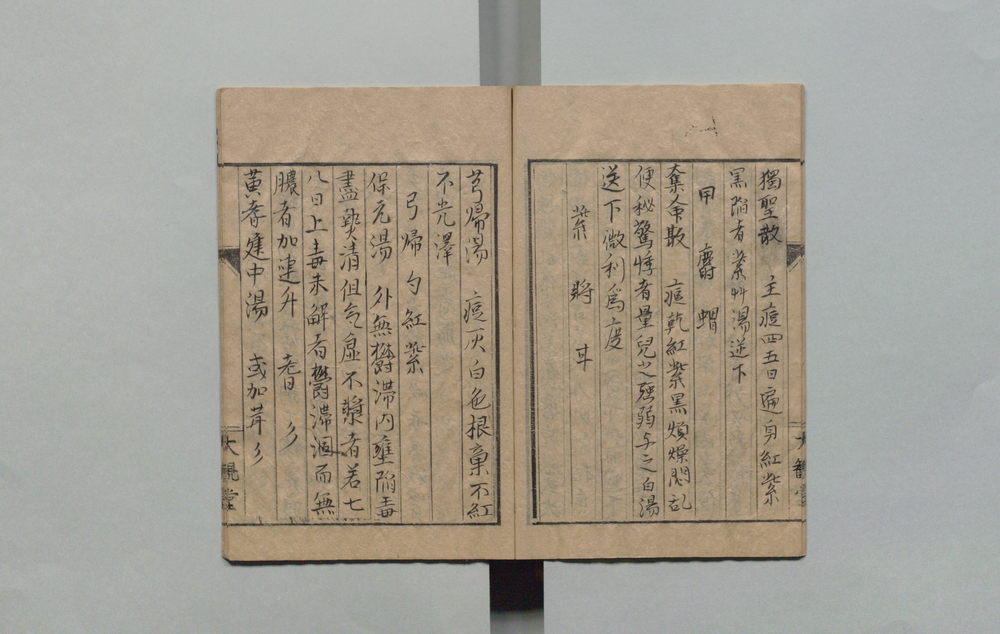 獨聖散 主痘四五日遍身紅紫
黑陷者紫艸湯送下
甲 麝 蝟
奪命散 痘乾紅紫黑煩燥悶乱
便秘驚悸者量兒之强弱与之白湯
送下微利爲度
紫 將 丑
芎歸湯 痘灰白色根窠不紅
不光澤
弓 歸 勺 紅 紫
保元湯 外無欝滯内壅陷毒
盡 清但气虛不漿者若七
八日上毒未解有欝滯 而無
膿者加連升
黃耆建中湯 或加茸
大觀堂